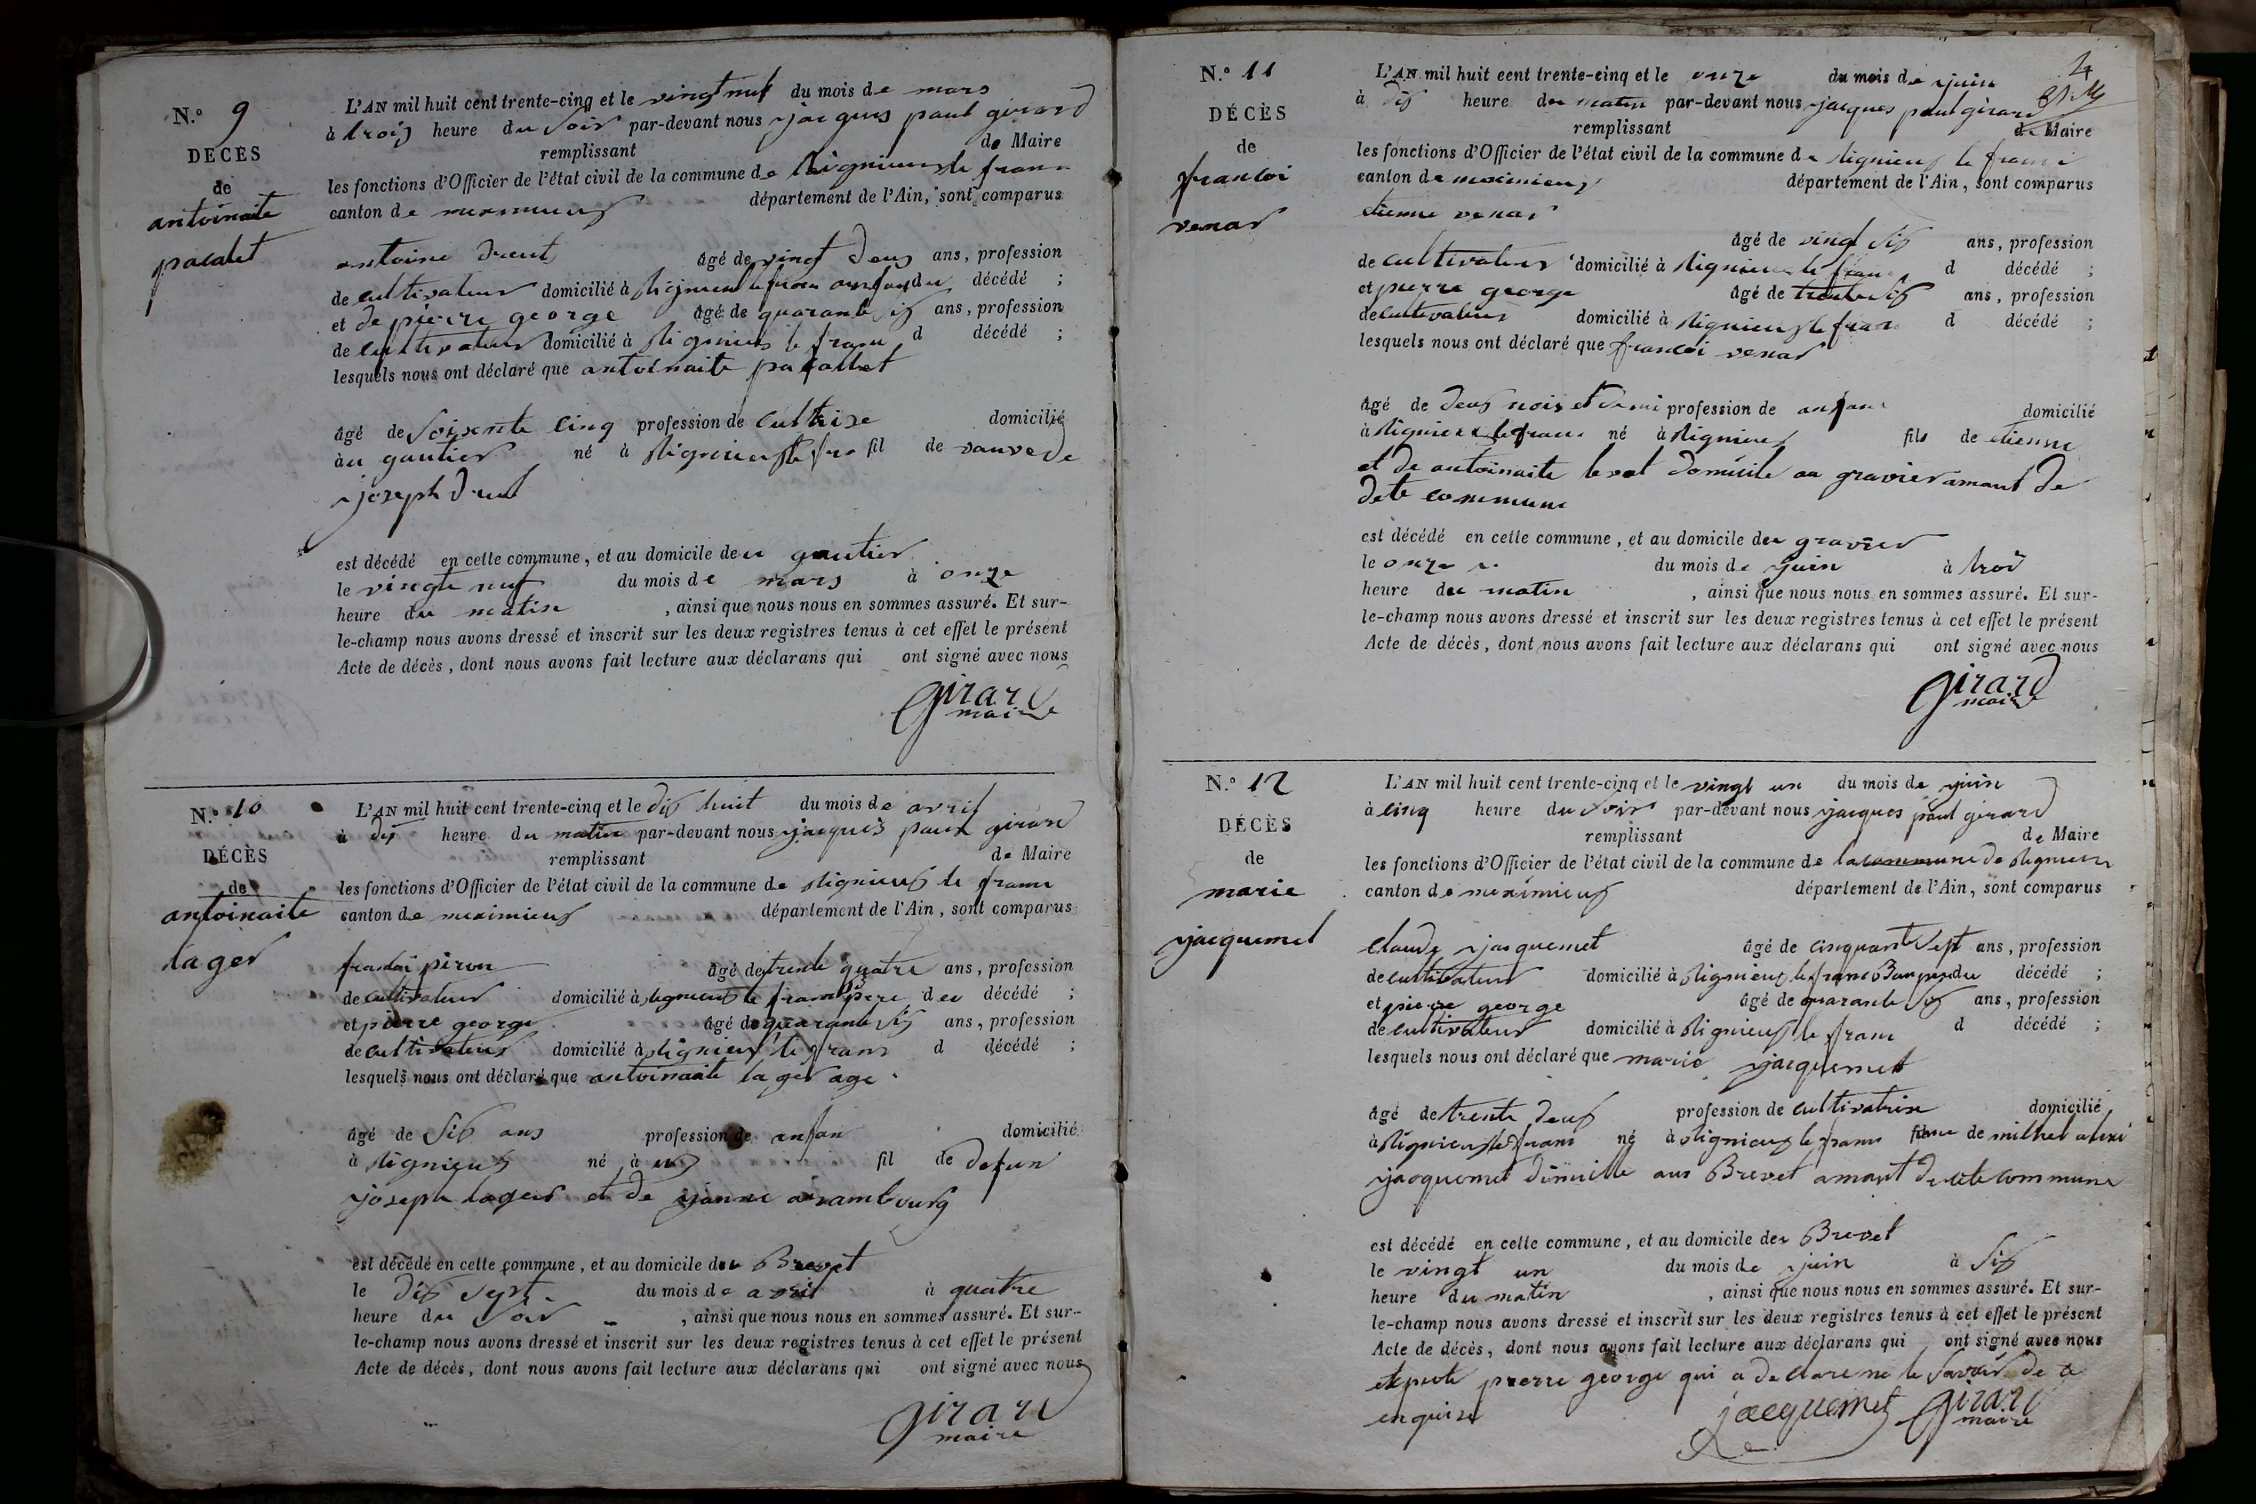 N.° 9
DÉCÈS
de
antoinaite
pacalet
L'AN mil huit cent trente-cinq et le vingt nuf du mois de mars
à trois heure du soir par-devant nous jacques paul girard
remplissant de Maire
les fonctions d'Officier de l'état civil de la commune de
canton de meximieux département de l'Ain, sont comparus
antoine âgé de vingt deux ans, profession
de cultivateur domicilié à décédé ;
et de pierre george âgé de quarante ans, profession
de cultivateur domicilié à rignieux le franc d décédé ;
lesquels nous ont déclaré que antoinaite
âgé de soixente cinq profession de domicilié
au gautier né à rignieux le fil de vauve de
joseph
est décédé en celle commune, et au domicile du gautier
le vingte nuf du mois de mars à onze
heure du matin , ainsi que nous nous en sommes assuré. Et sur-
le-champ nous avons dressé et inscrit sur les deux registres tenus à cet effet le présent
Acte de décès, dont nous avons fait lecture aux déclarans qui ont signé avec nous
girard
maire
N.° 10
DÉCÈS
de
antoinaite
lager
L'AN mil huit cent trente-cinq et le dix huit du mois de avril
à dix heure du matin par-devant nous jacques paul girard
remplissant de Maire
les fonctions d'Officier de l'état civil de la commune de rignieux le franc
canton de meximieux département de l'Ain, sont comparus
francoi piron âgé de trente quatre ans, profession
de cultivateur domicilié à rignieux le franc du décédé ;
et pierre george âgé de quarante six ans, profession
de cultivateur domicilié à rignieux le franc d décédé ;
lesquels nous ont déclaré que antoinaite lager age
âgé de six ans profession de anfan domicilié
à rignieux né à fil de defun
joseph lager et de
est décédé en celle commune, et au domicile du Brevet
le dix sept du mois de avril à quatre
heure du soir , ainsi que nous nous en sommes assuré. Et sur-
le-champ nous avons dressé et inscrit sur les deux registres tenus à cet effet le présent
Acte de décès, dont nous avons fait lecture aux déclarans qui ont signé avec nous
girard
maire
4
N.° 11
DÉCÈS
de
francoi
venar
L'AN mil huit cent trente-cinq et le onze du mois de juin
à dix heure du matin par-devant nous jacques paul girard
remplissant de Maire
les fonctions d'Officier de l'état civil de la commune de rignieux le franc
canton de meximieux département de l'Ain, sont comparus
etienne venar
âgé de vingt six ans, profession
de cultivateur domicilié à rignieux le franc d décédé ;
et pierre george âgé de ans, profession
de cultivateur domicilié à rignieux le franc d décédé ;
lesquels nous ont déclaré que francoi venar
âgé de deux mois et demi profession de anfan domicilié
à rignieux le franc né à rignieux fils de etienne
et de antoinaite domicile au gravier amant de
dete commune
est décédé en celle commune, et au domicile du gravier
le onze du mois de juin à troi
heure du matin , ainsi que nous nous en sommes assuré. Et sur-
le-champ nous avons dressé et inscrit sur les deux registres tenus à cet effet le présent
Acte de décès, dont nous avons fait lecture aux déclarans qui ont signé avec nous
girard
maire
N.° 12
DÉCÈS
de
marie
jacquemet
L'AN mil huit cent trente-cinq et le vingt un du mois de juin
à cinq heure du soir par-devant nous jacques paul girard
remplissant de Maire
les fonctions d'Officier de l'état civil de la commune de la commune de rignieux
canton de meximieux département de l'Ain, sont comparus
claude jacquemet âgé de cinquante sept ans, profession
de cultivateur domicilié à rignieux le franc décédé ;
et pierre george âgé de quarante six ans, profession
de cultivateur domicilié à rignieux le franc d décédé ;
lesquels nous ont déclaré que marie jacquemet
âgé de trente deux profession de cultivatrise domicilié
à rignieux le franc né à rignieux le franc de
jacquemet domicille aux Brevet amant de dete commune
est décédé en celle commune, et au domicile du Brevet
le vingt un du mois de juin à six
heure du matin , ainsi que nous nous en sommes assuré. Et sur-
le-champ nous avons dressé et inscrit sur les deux registres tenus à cet effet le présent
Acte de décès, dont nous avons fait lecture aux déclarans qui ont signé avec nous
pierre george qui a declare ne le savoir de ce
enquise jacquemet girard
maire